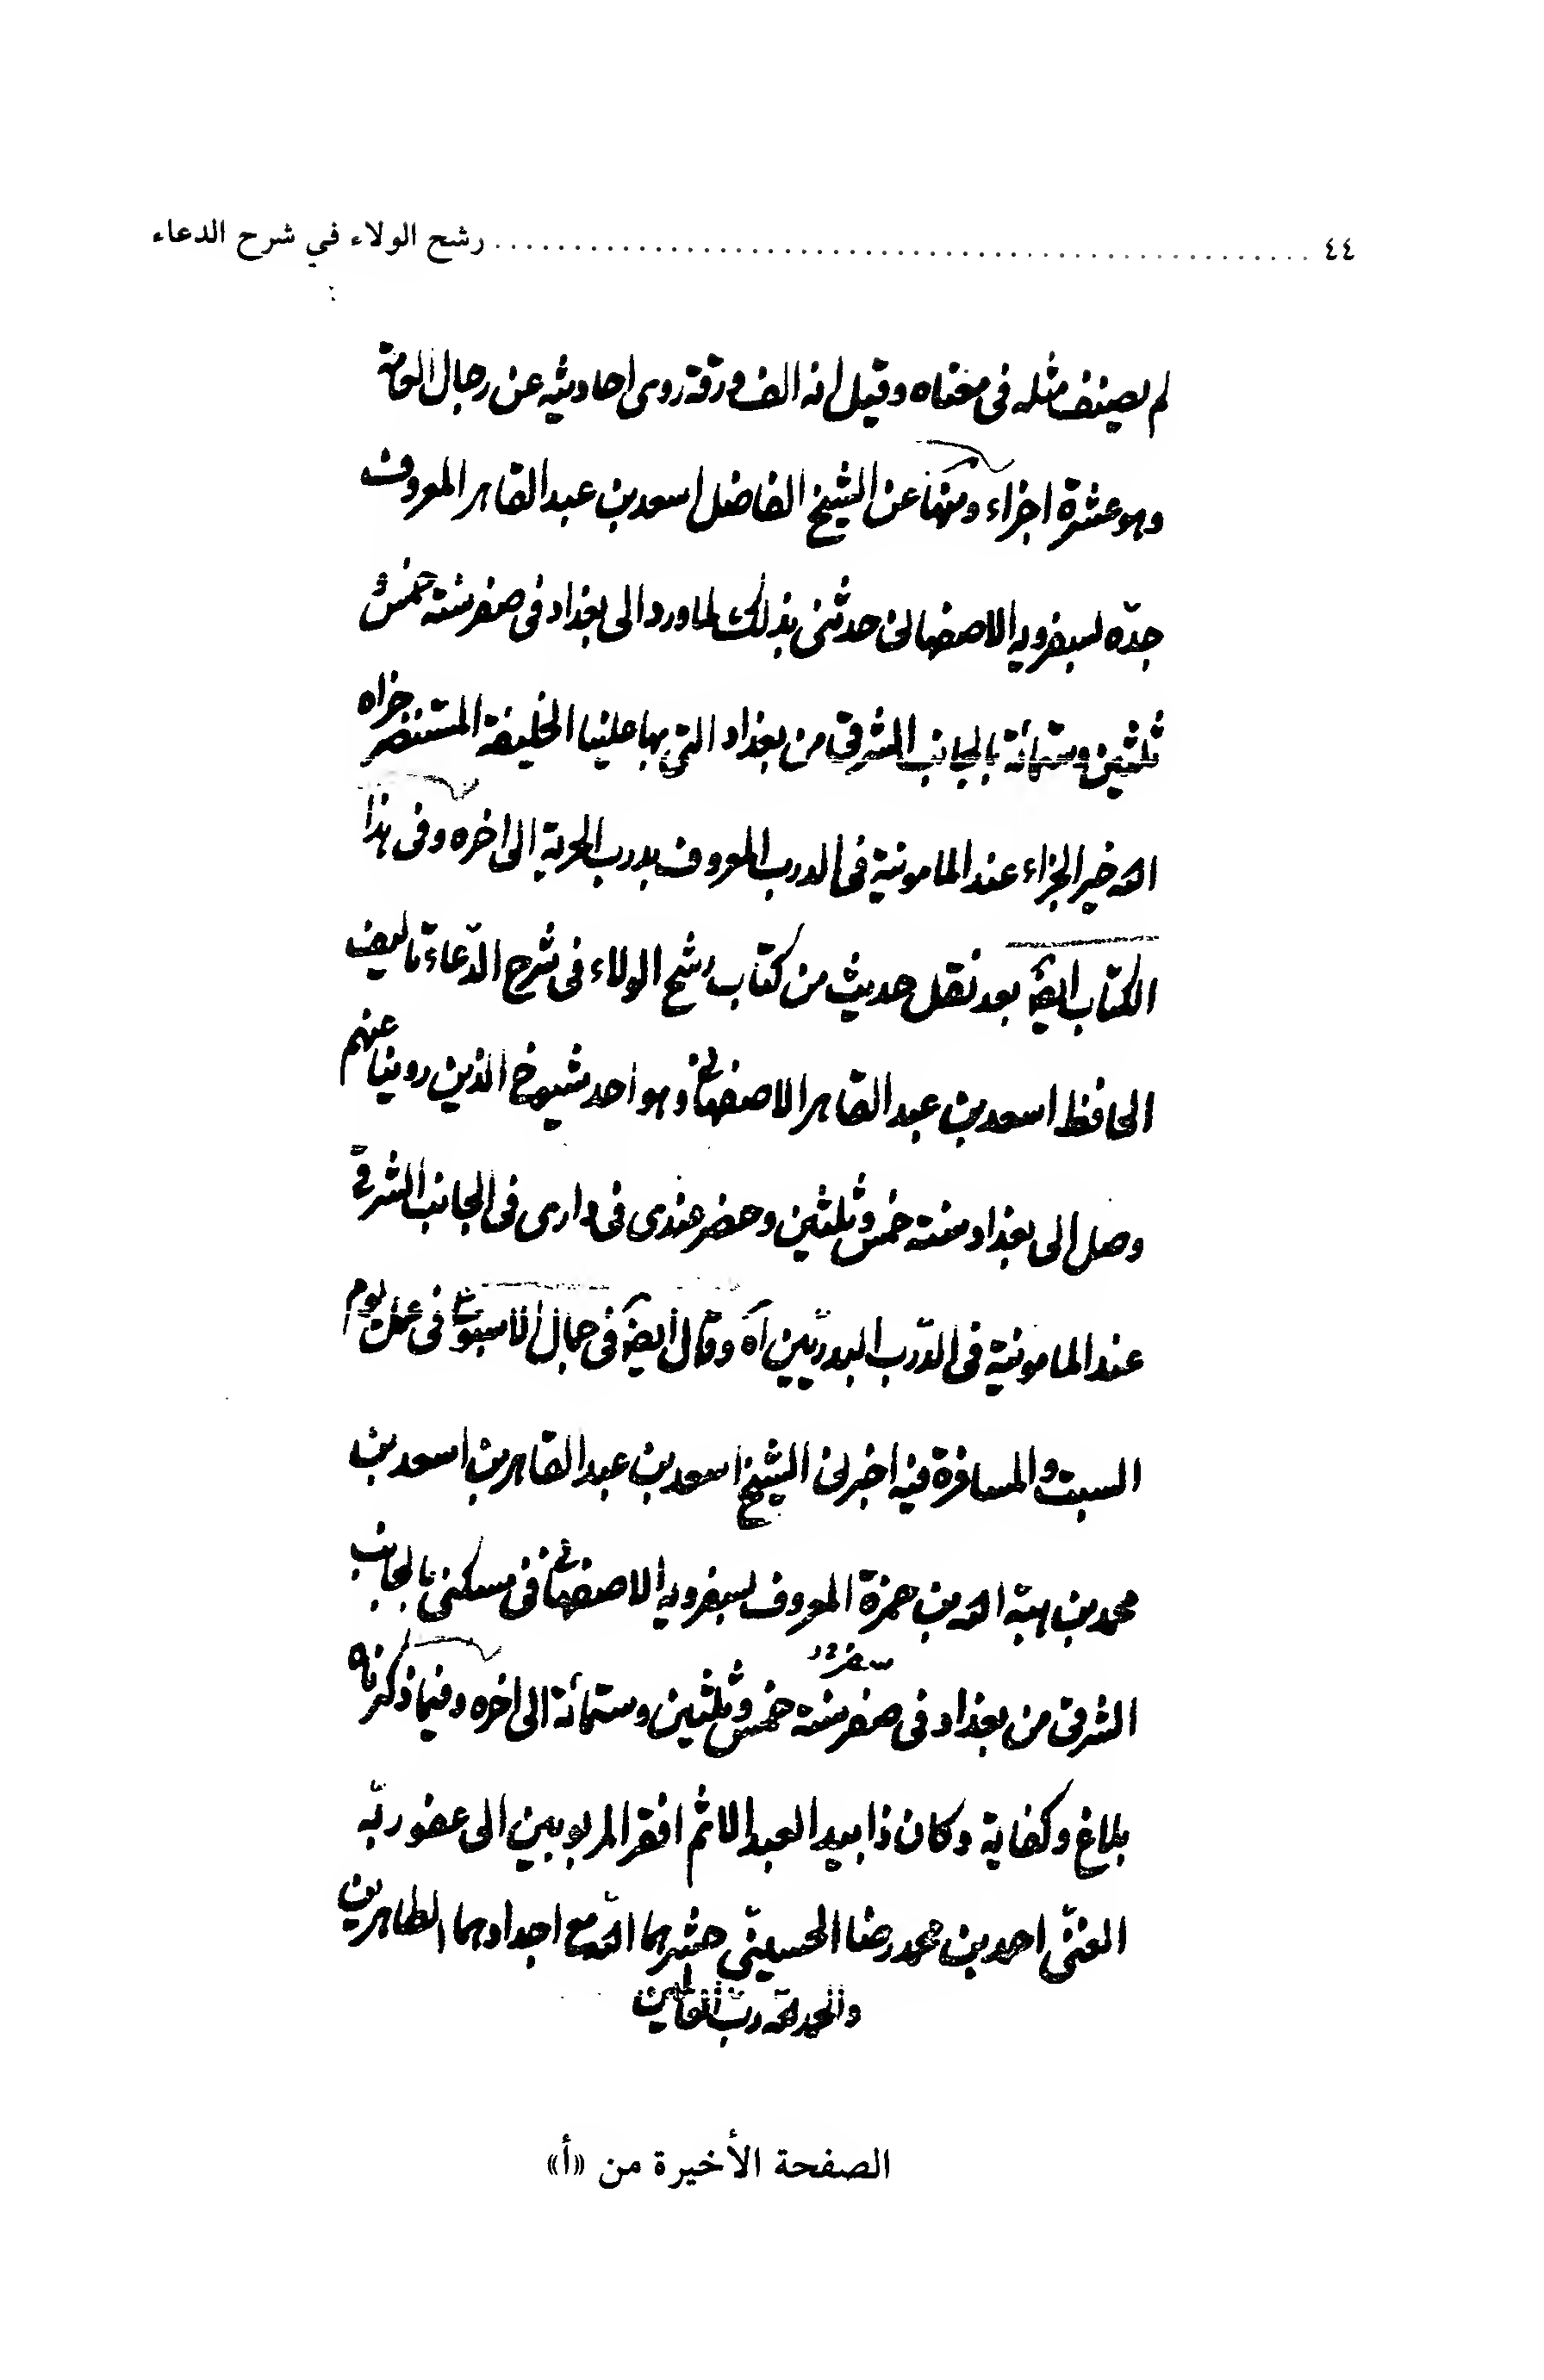 ٤٤ ........ رشح الولاء في شرح الدعاء
لم يصنف مثله فى معناه وقيل انه الف ورقة روى احاديثه عن رجال العامة
وهو عشرة اجزاء ومنها عن الشيخ الفاضل اسعد بن عبد القاهر المعروف
جدّه بسفرويه الاصفهانى حدثنى بذلك لما ورد الى بغداد فى صفر سنة خمس و
ثلثين وستمائة بالجانب الشرقى من بغداد التى بها علينا الخليفة المستنصر جزاه
الله خير الجزاء عند المامونية فى الدرب المعروف بدرب الحربة الى اخره وفى هذا
الكتاب ايضا بعد نقل حديث من كتاب رشح الولاء فى شرح الدّعاء تاليف
الحافظ اسعد بن عبد القاهر الاصفهانى وهو احد شيوخ الذين روينا عنهم
وصل الى بغداد سنة خمس وثلثين وحضر عندى فى دارى فى الجانب الشرقى
عند المامونية فى الدّرب البدريّين آه وقال ايضا فى جمال الاسبوع فى عمل يوم
السبت والمسافرة فيه اخبرنى الشيخ اسعد بن عبد القاهر بن اسعد بن
محمد بن هبة الله بن حمزة المعروف بسفرويه الاصفهانى فى مسكنى بالجانب
الشرقى من بغداد فى صفر سنة خمس وثلثين وستمائة الى اخره وفيما ذكرناه
بلاغ وكفاية وكان ذا بيد العبد الاثم افقر المربوبين الى عفو ربّه
الغنىّ احمد بن محمد رضا الحسينىّ حشرهما الله مع اجدادهما الطاهرين
والحمد لله ربّ العالمين
الصفحة الأخيرة من «أ»